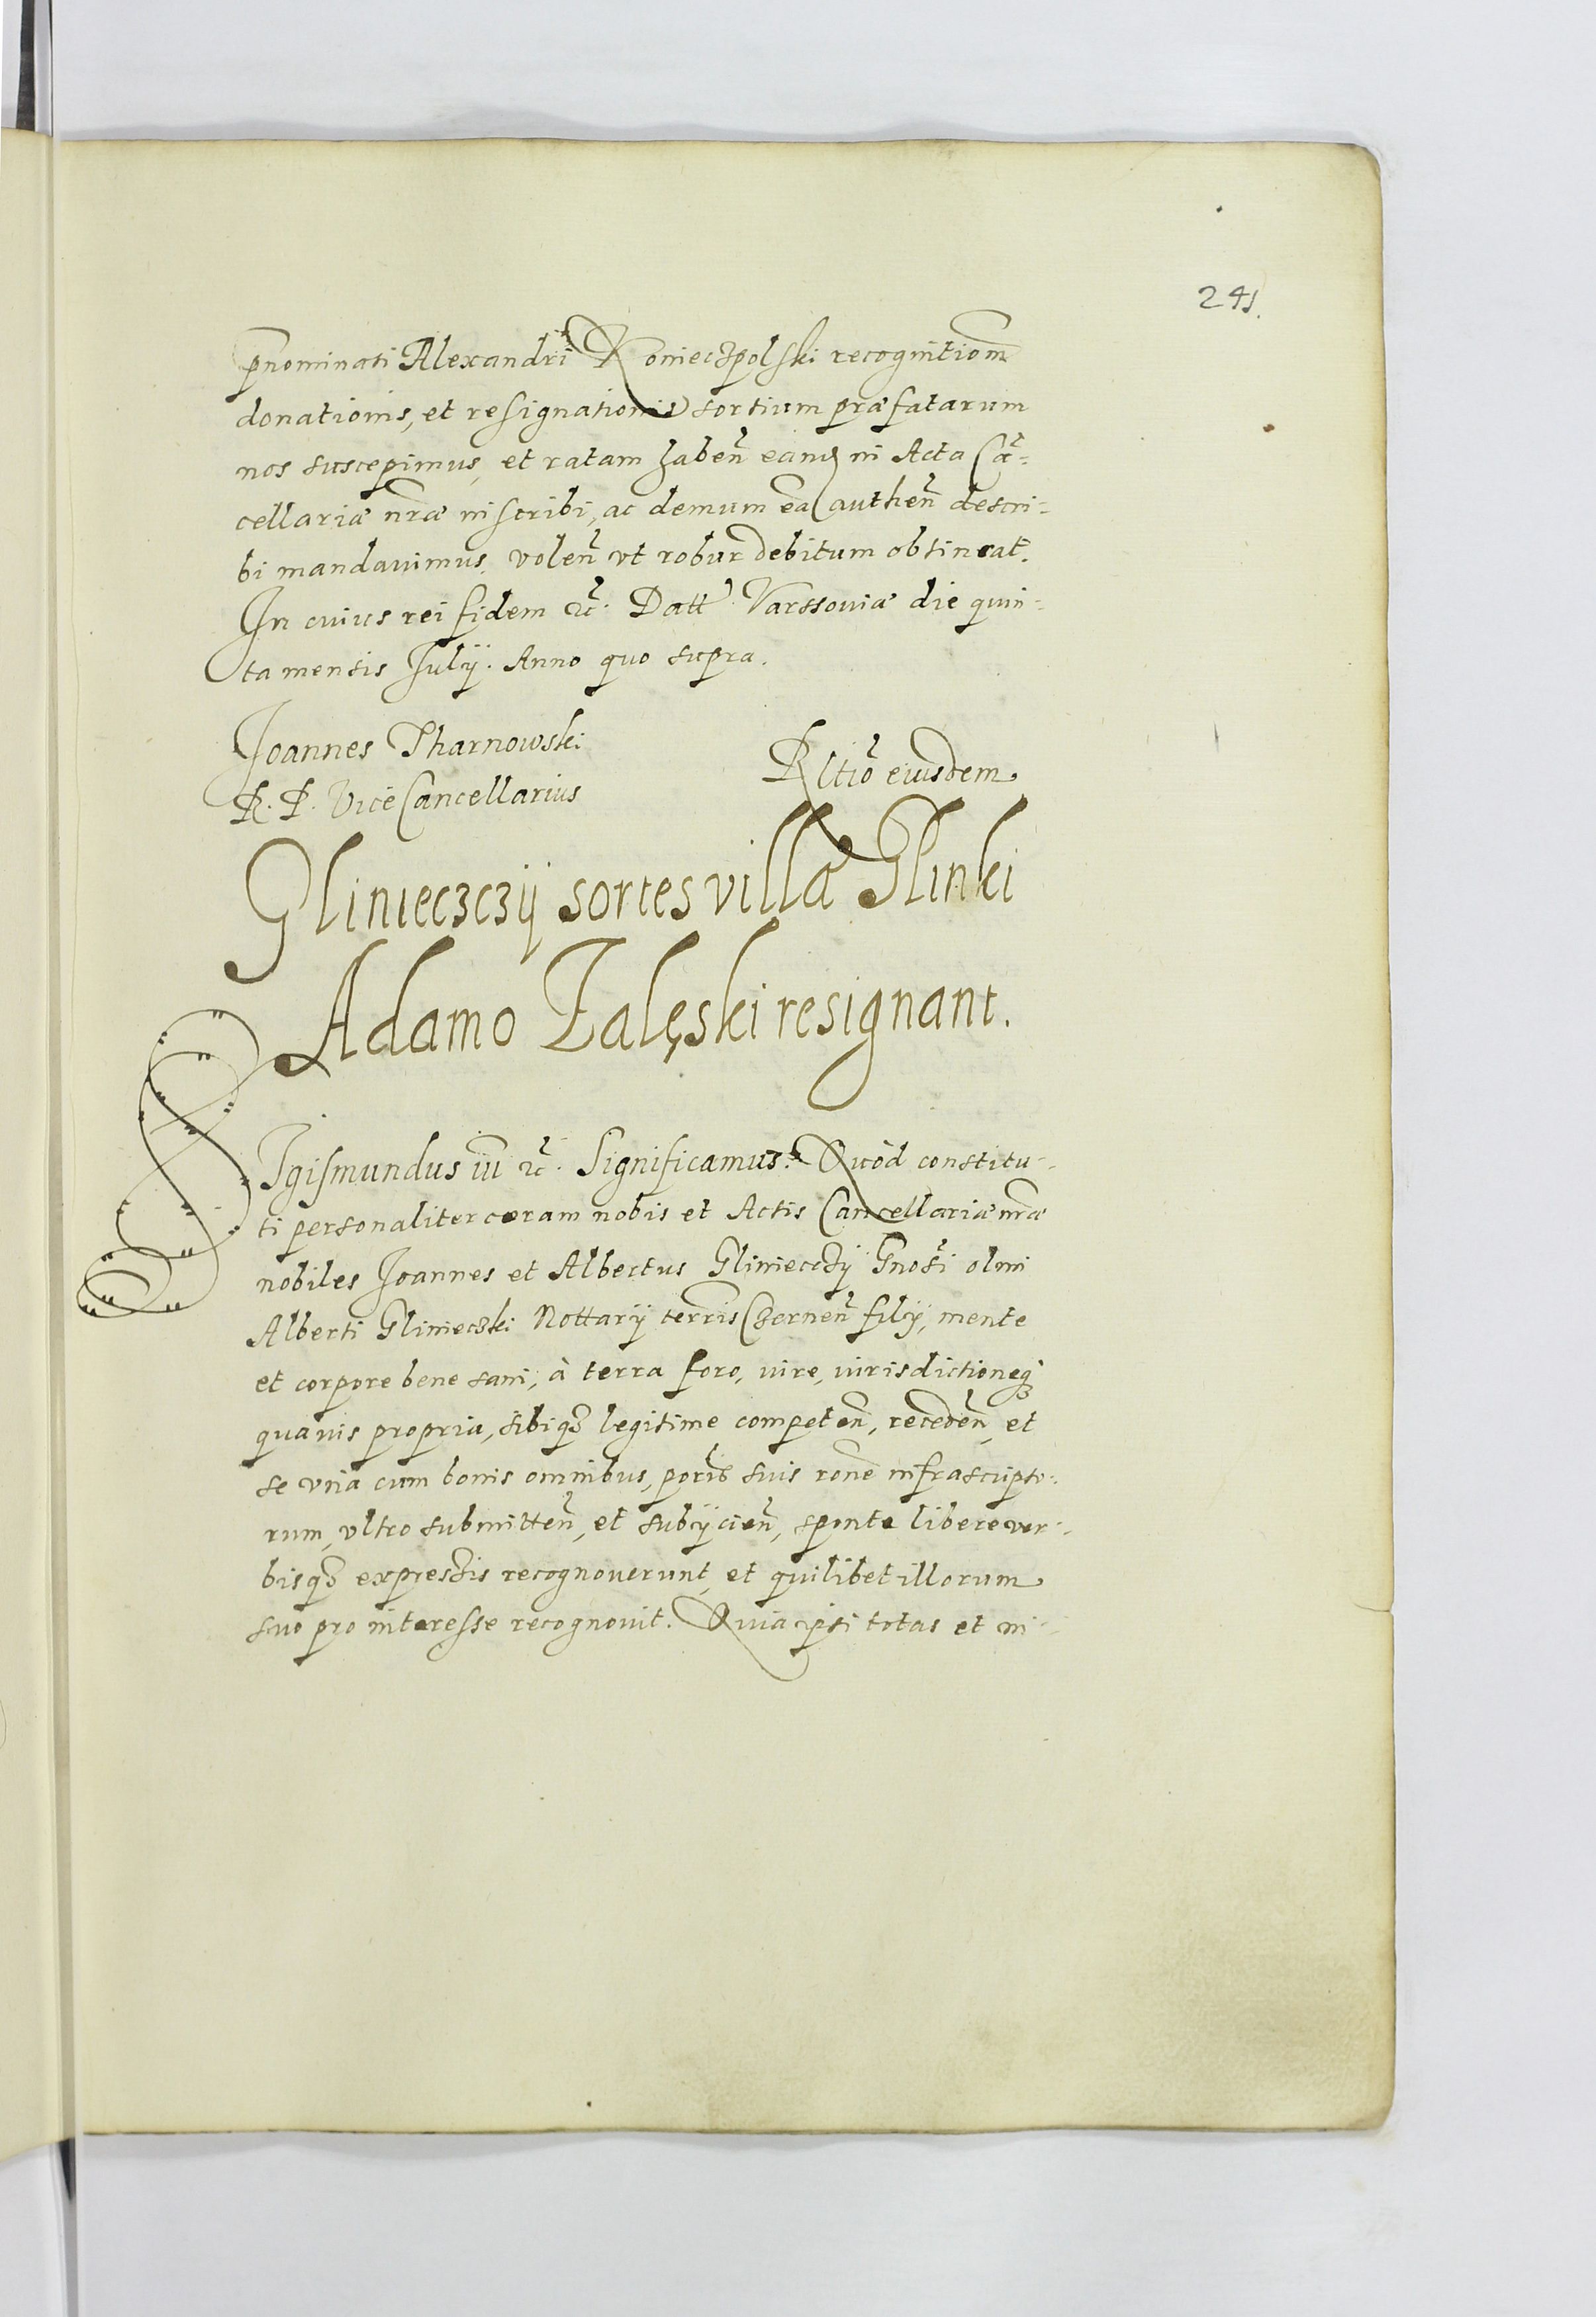 241.
pnominati Alexandri Konieczpolski recognitiom
donationis, et resignationis sortium præfatarum
nos suscepimus, et ratam haben̄ eand in Acta Cā-
cellariæ nr̄æ inscribi, ac demum ea authen̄ descri-
bi mandauimus. volen̄ vt robur debitum obtineat.
In cuius rei fidem etc̄. Datt Varssouiæ die quin-
ta mensis Iulij. Anno quo supra.
Joannes Tharnowski
R. P. Vice Cancellarius
Rltio eiusdem
Glinieczczij sortes villæ Glinki
Adamo Zalęski resignant.
SIgismundus iii etc̄. Significamus. Quòd constitu-
ti personaliter coram nobis et Actis Cancellariæ nr̄æ
nobiles Joannes et Albertus Glinieczij Gnosi olim
Alberti Glinieczki Nottarij terris Czernen̄ filij, mente
et corpore bene sani, à terra foro, iure, iurisdictioneq3
quauis propria, sibiq3 legitime competen̄, receden̄, et
se vnà cum bonis omnibus, poribs suis rone infrascripto-
rum, vltro submitten̄, et subijcien̄, sponte libere ver-
bisq3 expressis recognouerunt, et quilibet illorum
suo pro interesse recognouit. Quia ipsi totas et in-